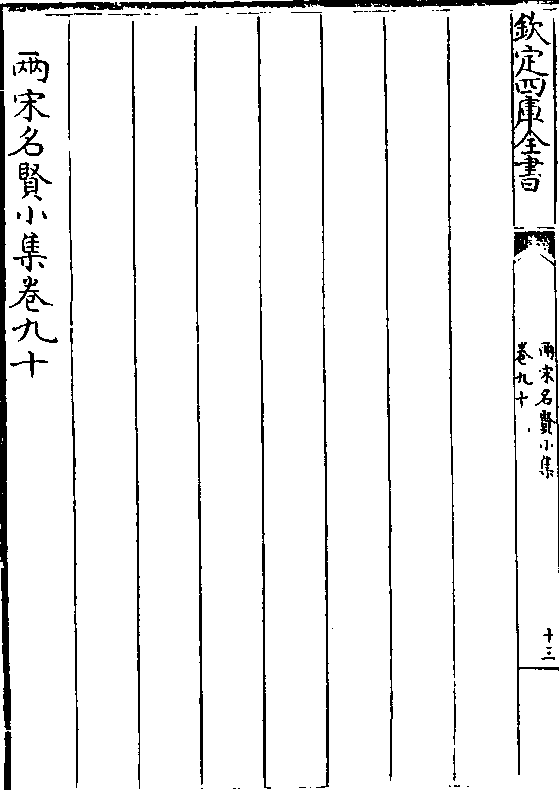 欽定四庫全書
兩宋名賢小集
卷九十
十三
兩宋名賢小集卷九十